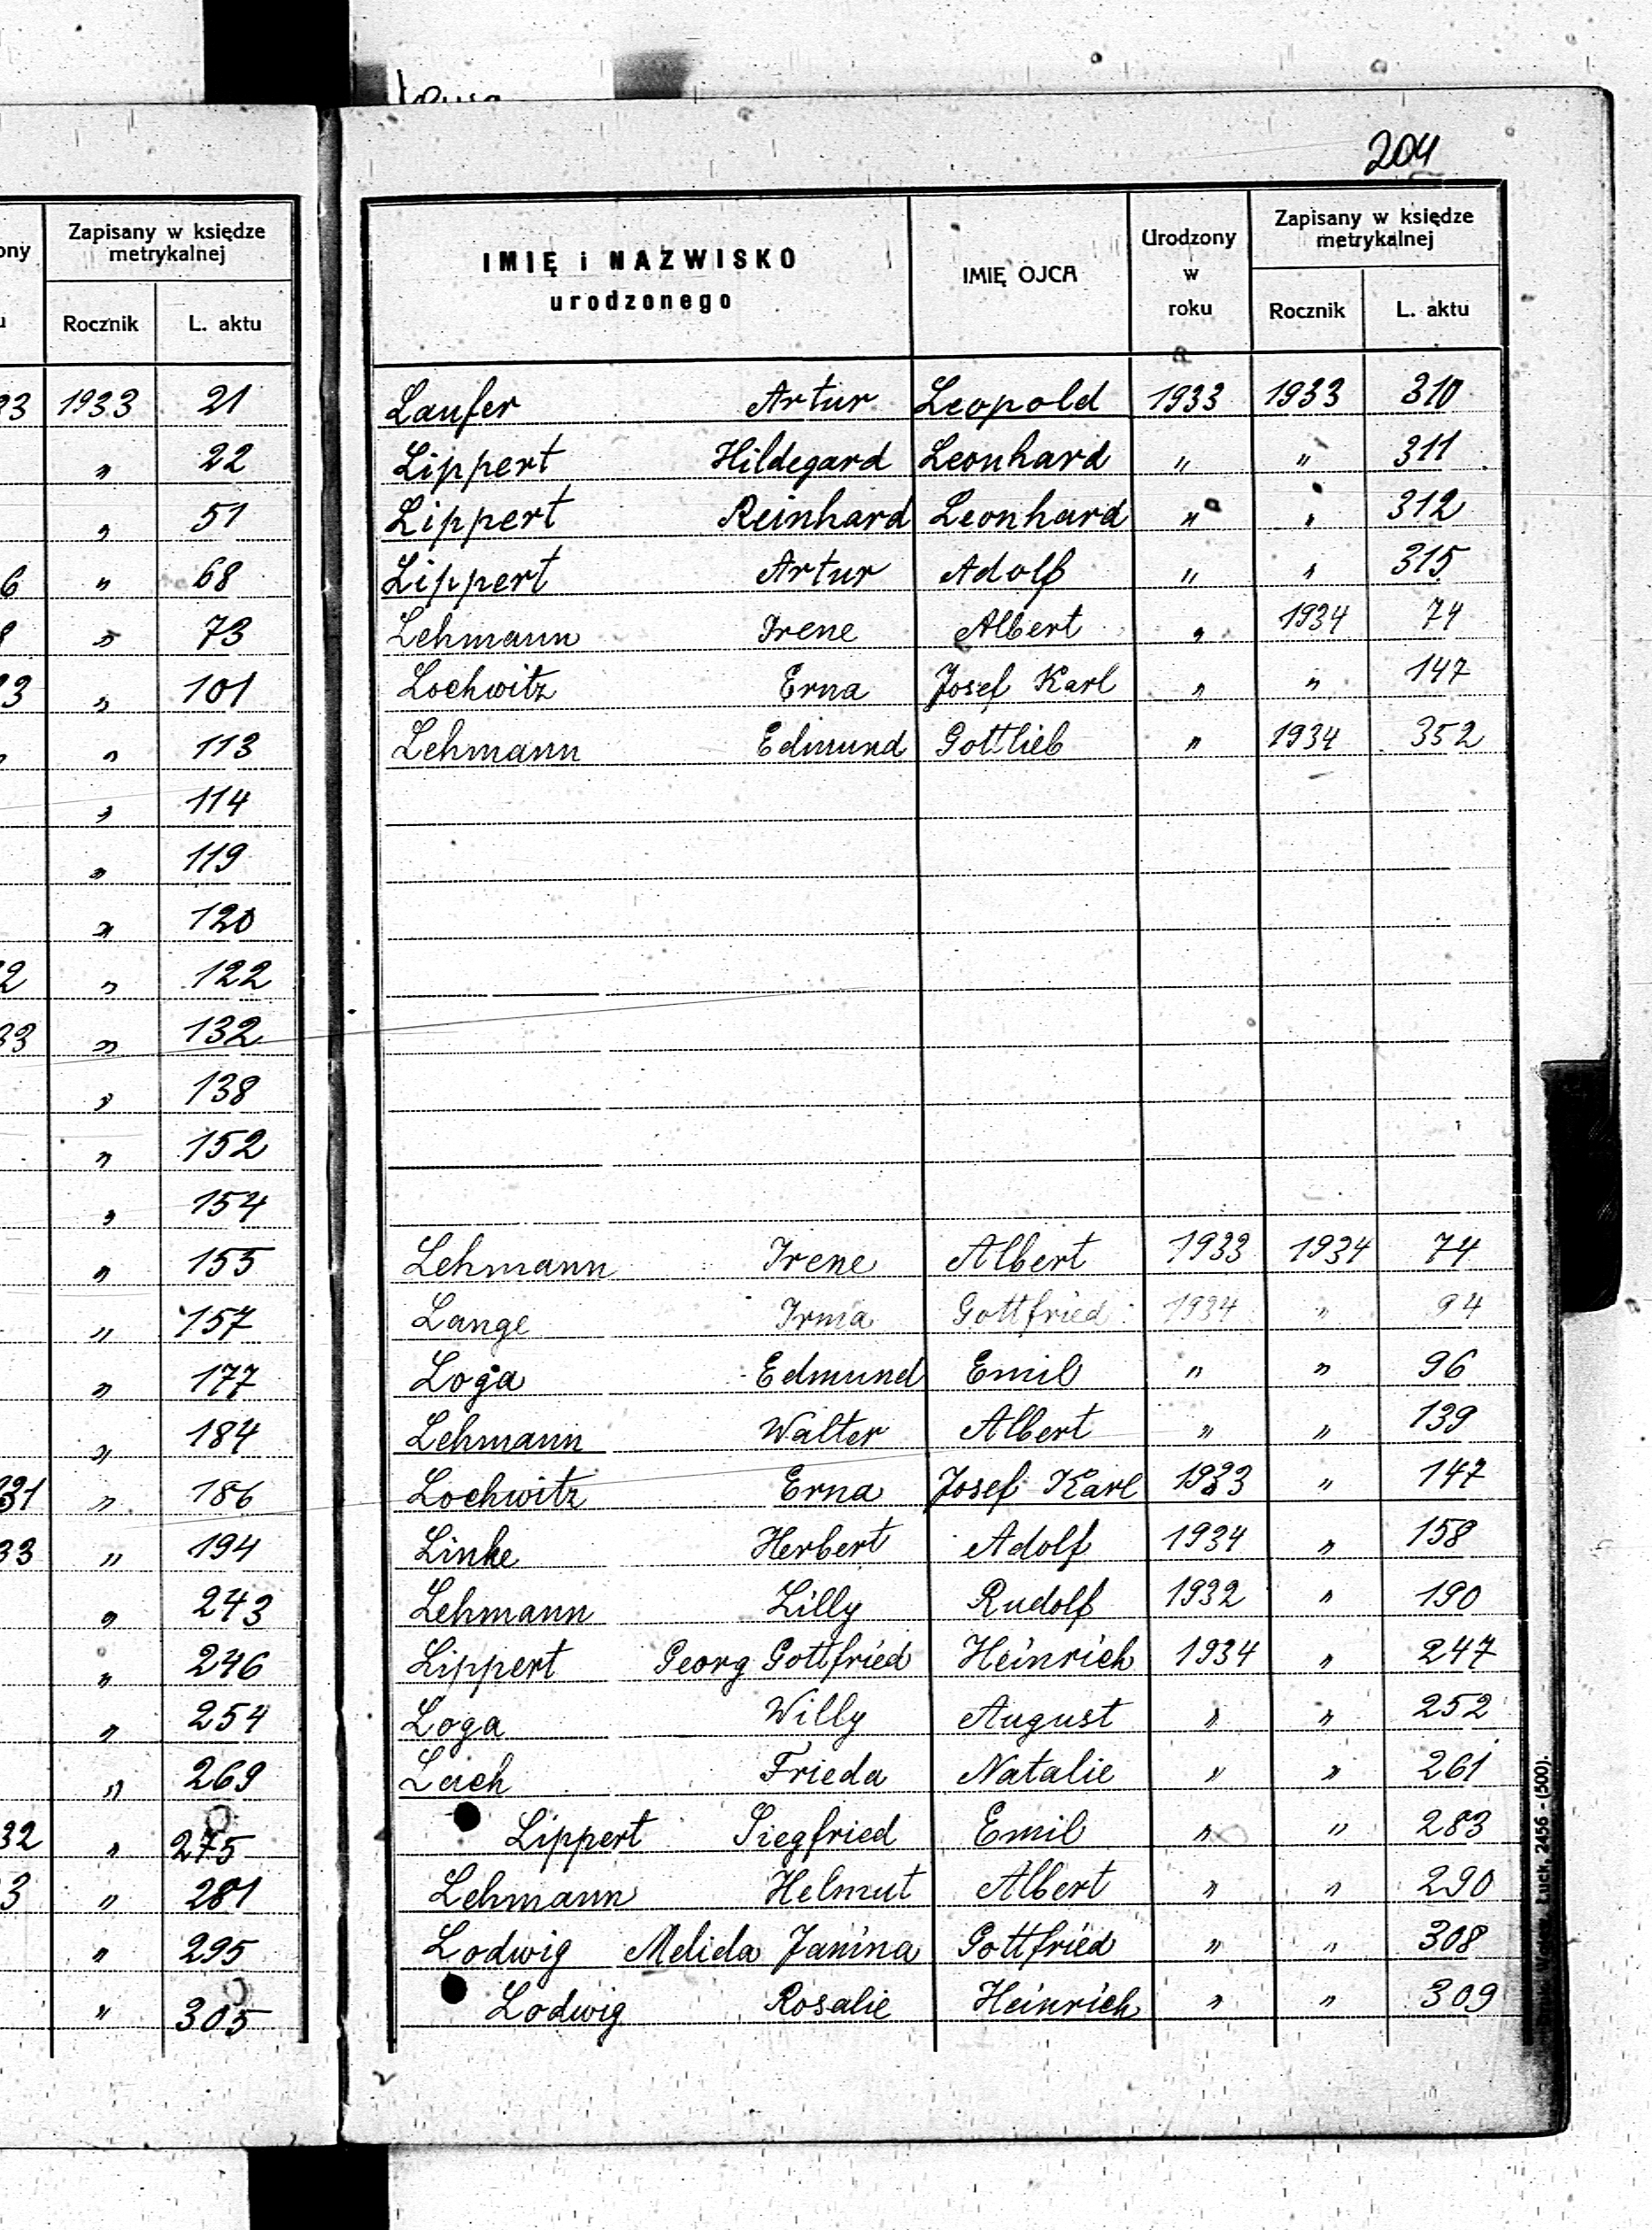 204
ony Zapisany w księdze metrykalnej
Rocznik L. aktu
33 1933 21
„ 22
„ 51
6 „ 68
8 „ 73
33 „ 101
„ „ 113
„ 114
„ 119
„ 120
2 „ 122
33 „ 132
„ 138
„ 152
„ 154
„ 155
„ 157
„ 177
„ 184
31 „ 186
33 „ 194
„ 243
„ 246
„ 254
„ 269
32 „ 275
3 „ 281
„ 295
„ 305
IMIĘ i NAZWISKO urodzonego IMIĘ OJCA Urodzony w roku Zapisany w księdze metrykalnej
Rocznik L. aktu
Laufer Artur Leopold 1933 1933 310
Lippert Hildegard Leonhard „ „ 311
Lippert Reinhard Leonhard „ „ 312
Lippert Artur Adolf „ „ 315
Lehmann Irene Albert „ 1934 74
Lochwitz Erna Josef Karl „ „ 147
Lehmann Edmund Gottlieb „ 1934 352
Lehmann Irene Albert 1933 1934 74
Lange Irma Gottfried 1934 „ 94
Loga Edmund Emil „ „ 96
Lehmann Walter Albert „ „ 139
Lochwitz Erna Josef Karl 1933 „ 147
Linke Herbert Adolf 1934 „ 158
Lehmann Lilly Rudolf 1932 „ 190
Lippert Georg Gottfried Heinrich 1934 „ 247
Loga Willy August „ „ 252
Lach Frieda Natalie „ „ 261
Lippert Siegfried Emil „ „ 283
Lehmann Helmut Albert „ „ 290
Lodwig Melida Janina Gottfried „ „ 308
Lodwig Rosalie Heinrich „ „ 309
Łuck, 2456 - (500).